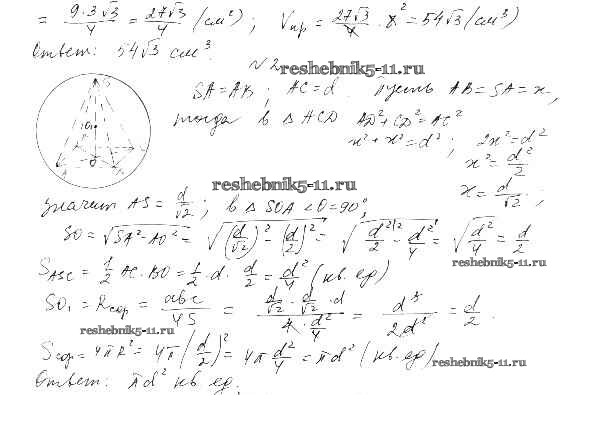 = 9·3√3/4 = 27√3/4 (см²); Vпр = 27√3/4 · 8² = 54√3 (см³)
Ответ: 54√3 см³.
№2
reshebnik5-11.ru
SA = AB; AC = d. Пусть AB = SA = x,
тогда в △ACD AD² + CD² = AC²
x² + x² = d²; 2x² = d²
x² = d²/2
reshebnik5-11.ru
x = d/√2;
значит AS = d/√2; в △SOA ∠O = 90°,
SO = √(SA² - AO²) = √((d/√2)² - (d/2)²) = √(d²/2 - d²/4) = √(d²/4) = d/2
reshebnik5-11.ru
S ASC = 1/2 AC·BO = 1/2 · d · d/2 = d²/4 (кв. ед)
SO₁ = Rсфр = abc/4S = (d/√2 · d/√2 · d)/(4 · d²/4) = d³/2d² = d/2.
reshebnik5-11.ru
Sсфр = 4πR² = 4π(d/2)² = 4π d²/4 = πd² (кв. ед)
reshebnik5-11.ru
Ответ: πd² кв. ед.